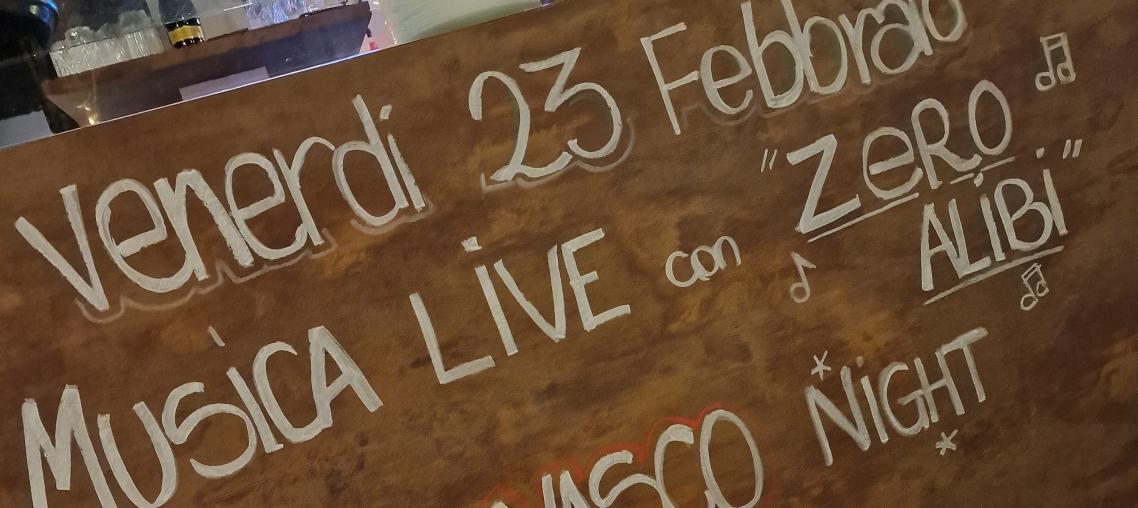 Venerdì 23 Febbraio
MUSICA LIVE con "ZERO ALIBI"
VASCO NIGHT